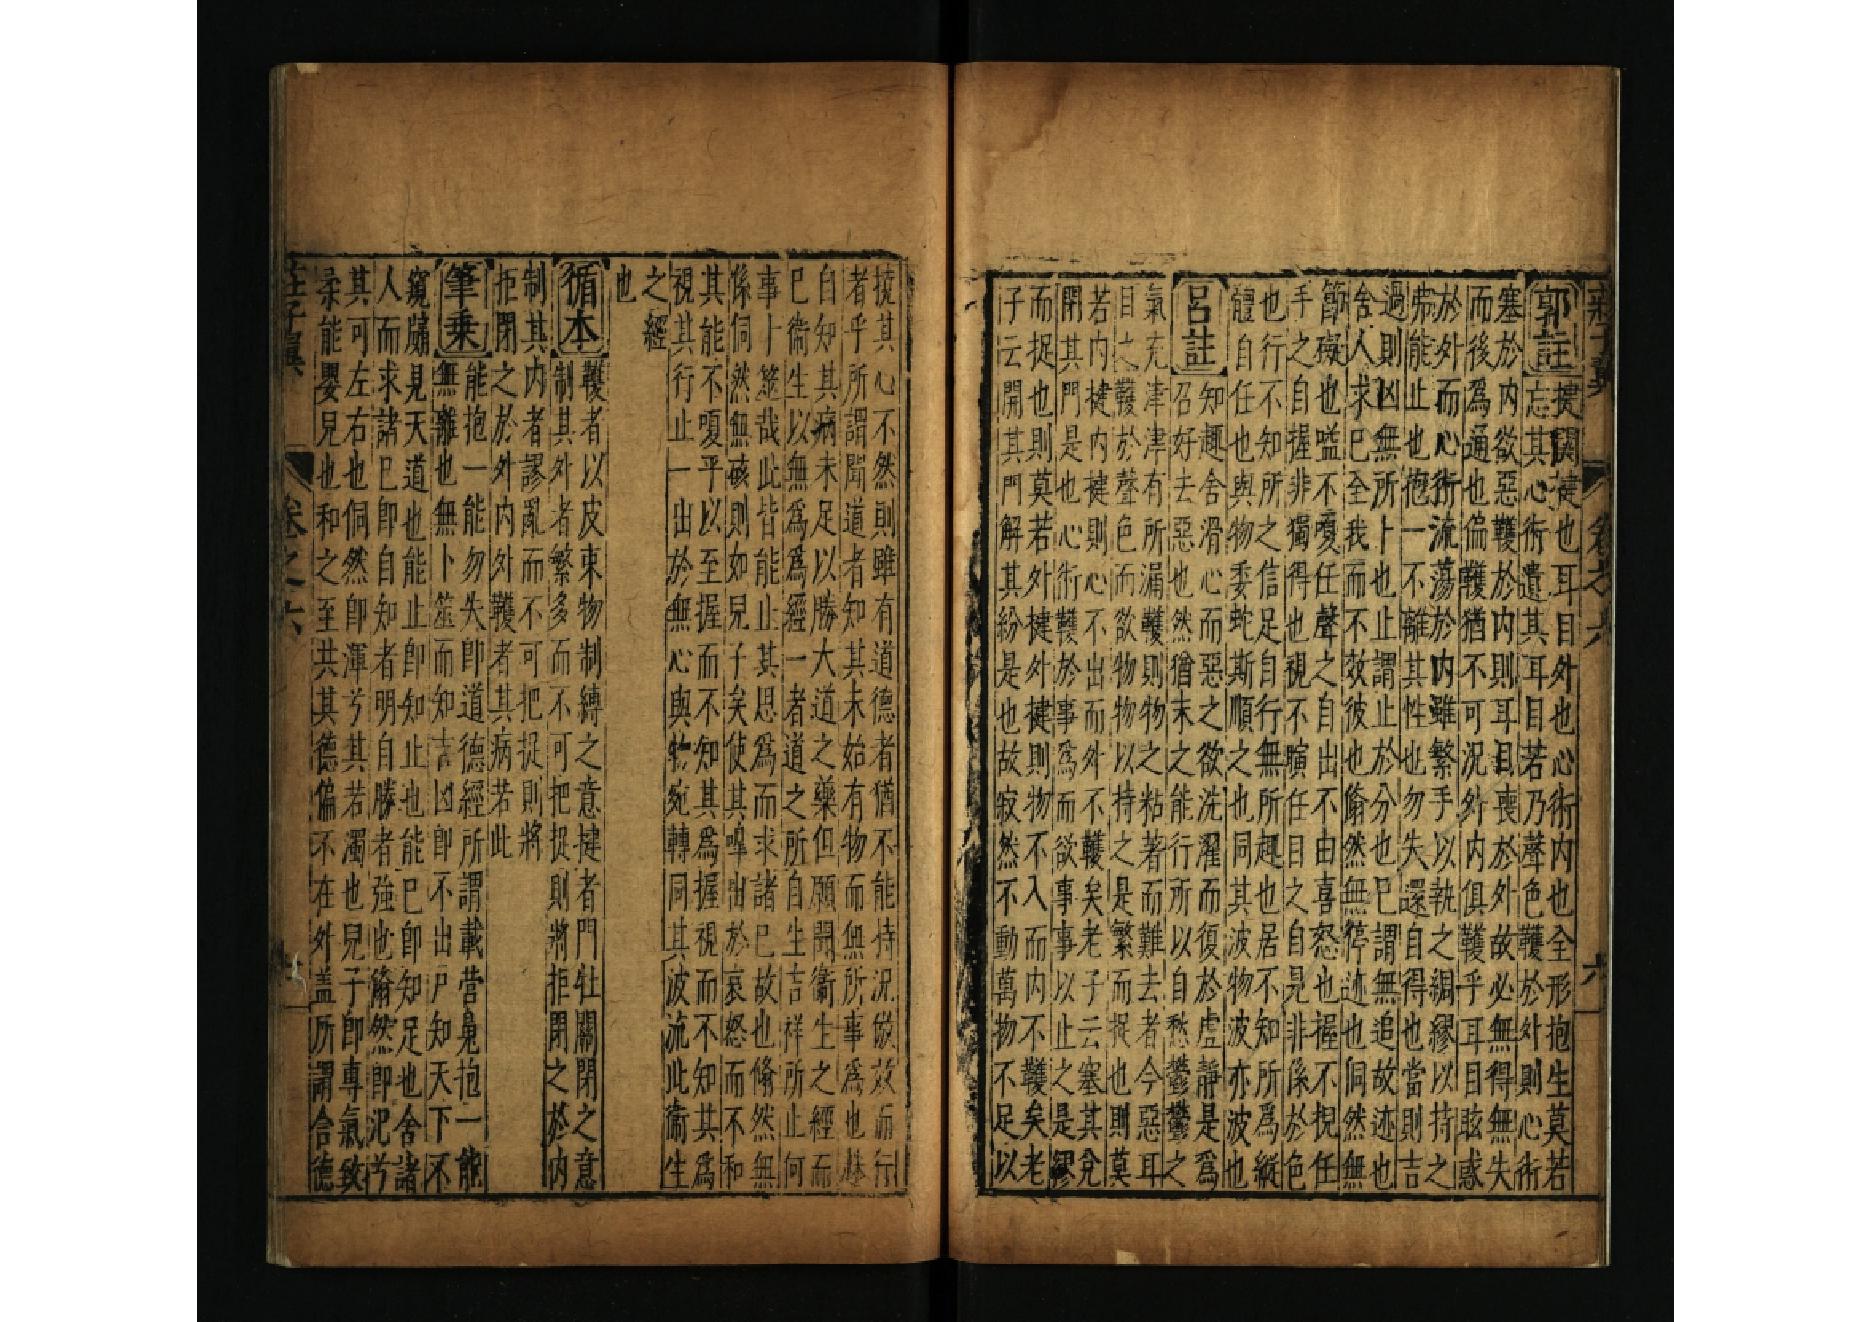 莊子翼
卷之六
六
郭註
揵關揵也耳目外也心術內也全形抱生莫若
忘其心術遺其耳目若乃聲色韄於外則心術
塞於內欲惡韄於內則耳目喪於外故必無得無失
而後爲通也偏韄猶不可況外內俱韄乎耳目眩惑
於外而心術流蕩於內雖繁手以執之綢繆以持之
弗能止也抱一不離其性也勿失還自得也當則吉
過則凶無所卜也止謂止於分也已謂無追故迹也
舍人求已全我而不效彼也翛然無停迹也侗然無
節礙也嗌不嗄任聲之自出不由喜怒也握不掜任
手之自握非獨得也視不瞚任目之自見非係於色
也行不知所之信足自行無所趣也居不知所爲縱
體自任也與物委蛇斯順之也同其波物波亦波也
呂註
知趣舍滑心而惡之欲洗濯而復於虛靜是爲
召好去惡也然猶未之能行所以自愁鬱鬱之
氣充津津有所漏韄則物之粘著而難去者今惡耳
目之韄於聲色而欲物物以持之是繁而捉也則莫
若內揵內揵則心不出而外不韄矣老子云塞其兌
開其門是也心術韄於事爲而欲事事以止之是繆
而捉也則莫若外揵外揵則物不入而內不韄矣老
子云開其門解其紛是也故寂然不動萬物不足以
撓其心不然則雖有道德者猶不能持況倣效而行
者乎所謂聞道者知其未始有物而無所事爲也趎
自知其病未足以勝大道之藥但願聞衞生之經而
已衞生以無爲爲經一者道之所自生吉祥所止何
事卜筮哉此皆能止其思爲而求諸已故也翛然無
係侗然無硋則如兒子矣使其嘷出於哀怒而不和
其能不嗄乎以至握而不知其爲握視而不知其爲
視其行止一出於無心與物宛轉同其波流此衞生
之經
也
循本
韄者以皮束物制縛之意揵者門牡關閉之意
制其外者繁多而不可把捉則將拒閉之於內
制其內者謬亂而不可把捉則將
拒閉之於外內外韄者其病若此
筆乘
能抱一能勿失即道德經所謂載營魄抱一能
無離也無卜筮而知吉凶即不出戶知天下不
窺牖見天道也能止即知止也能已即知足也舍諸
人而求諸已即自知者明自勝者強也翛然即氾兮
其可左右也侗然即渾兮其若濁也兒子即專氣致
柔能嬰兒也和之至共其德偏不在外盖所謂含德
莊子翼
卷之六